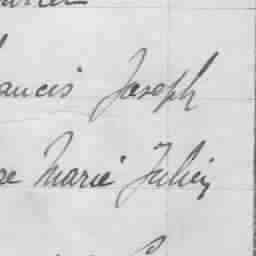 ancis Joseph
se Marie Julien